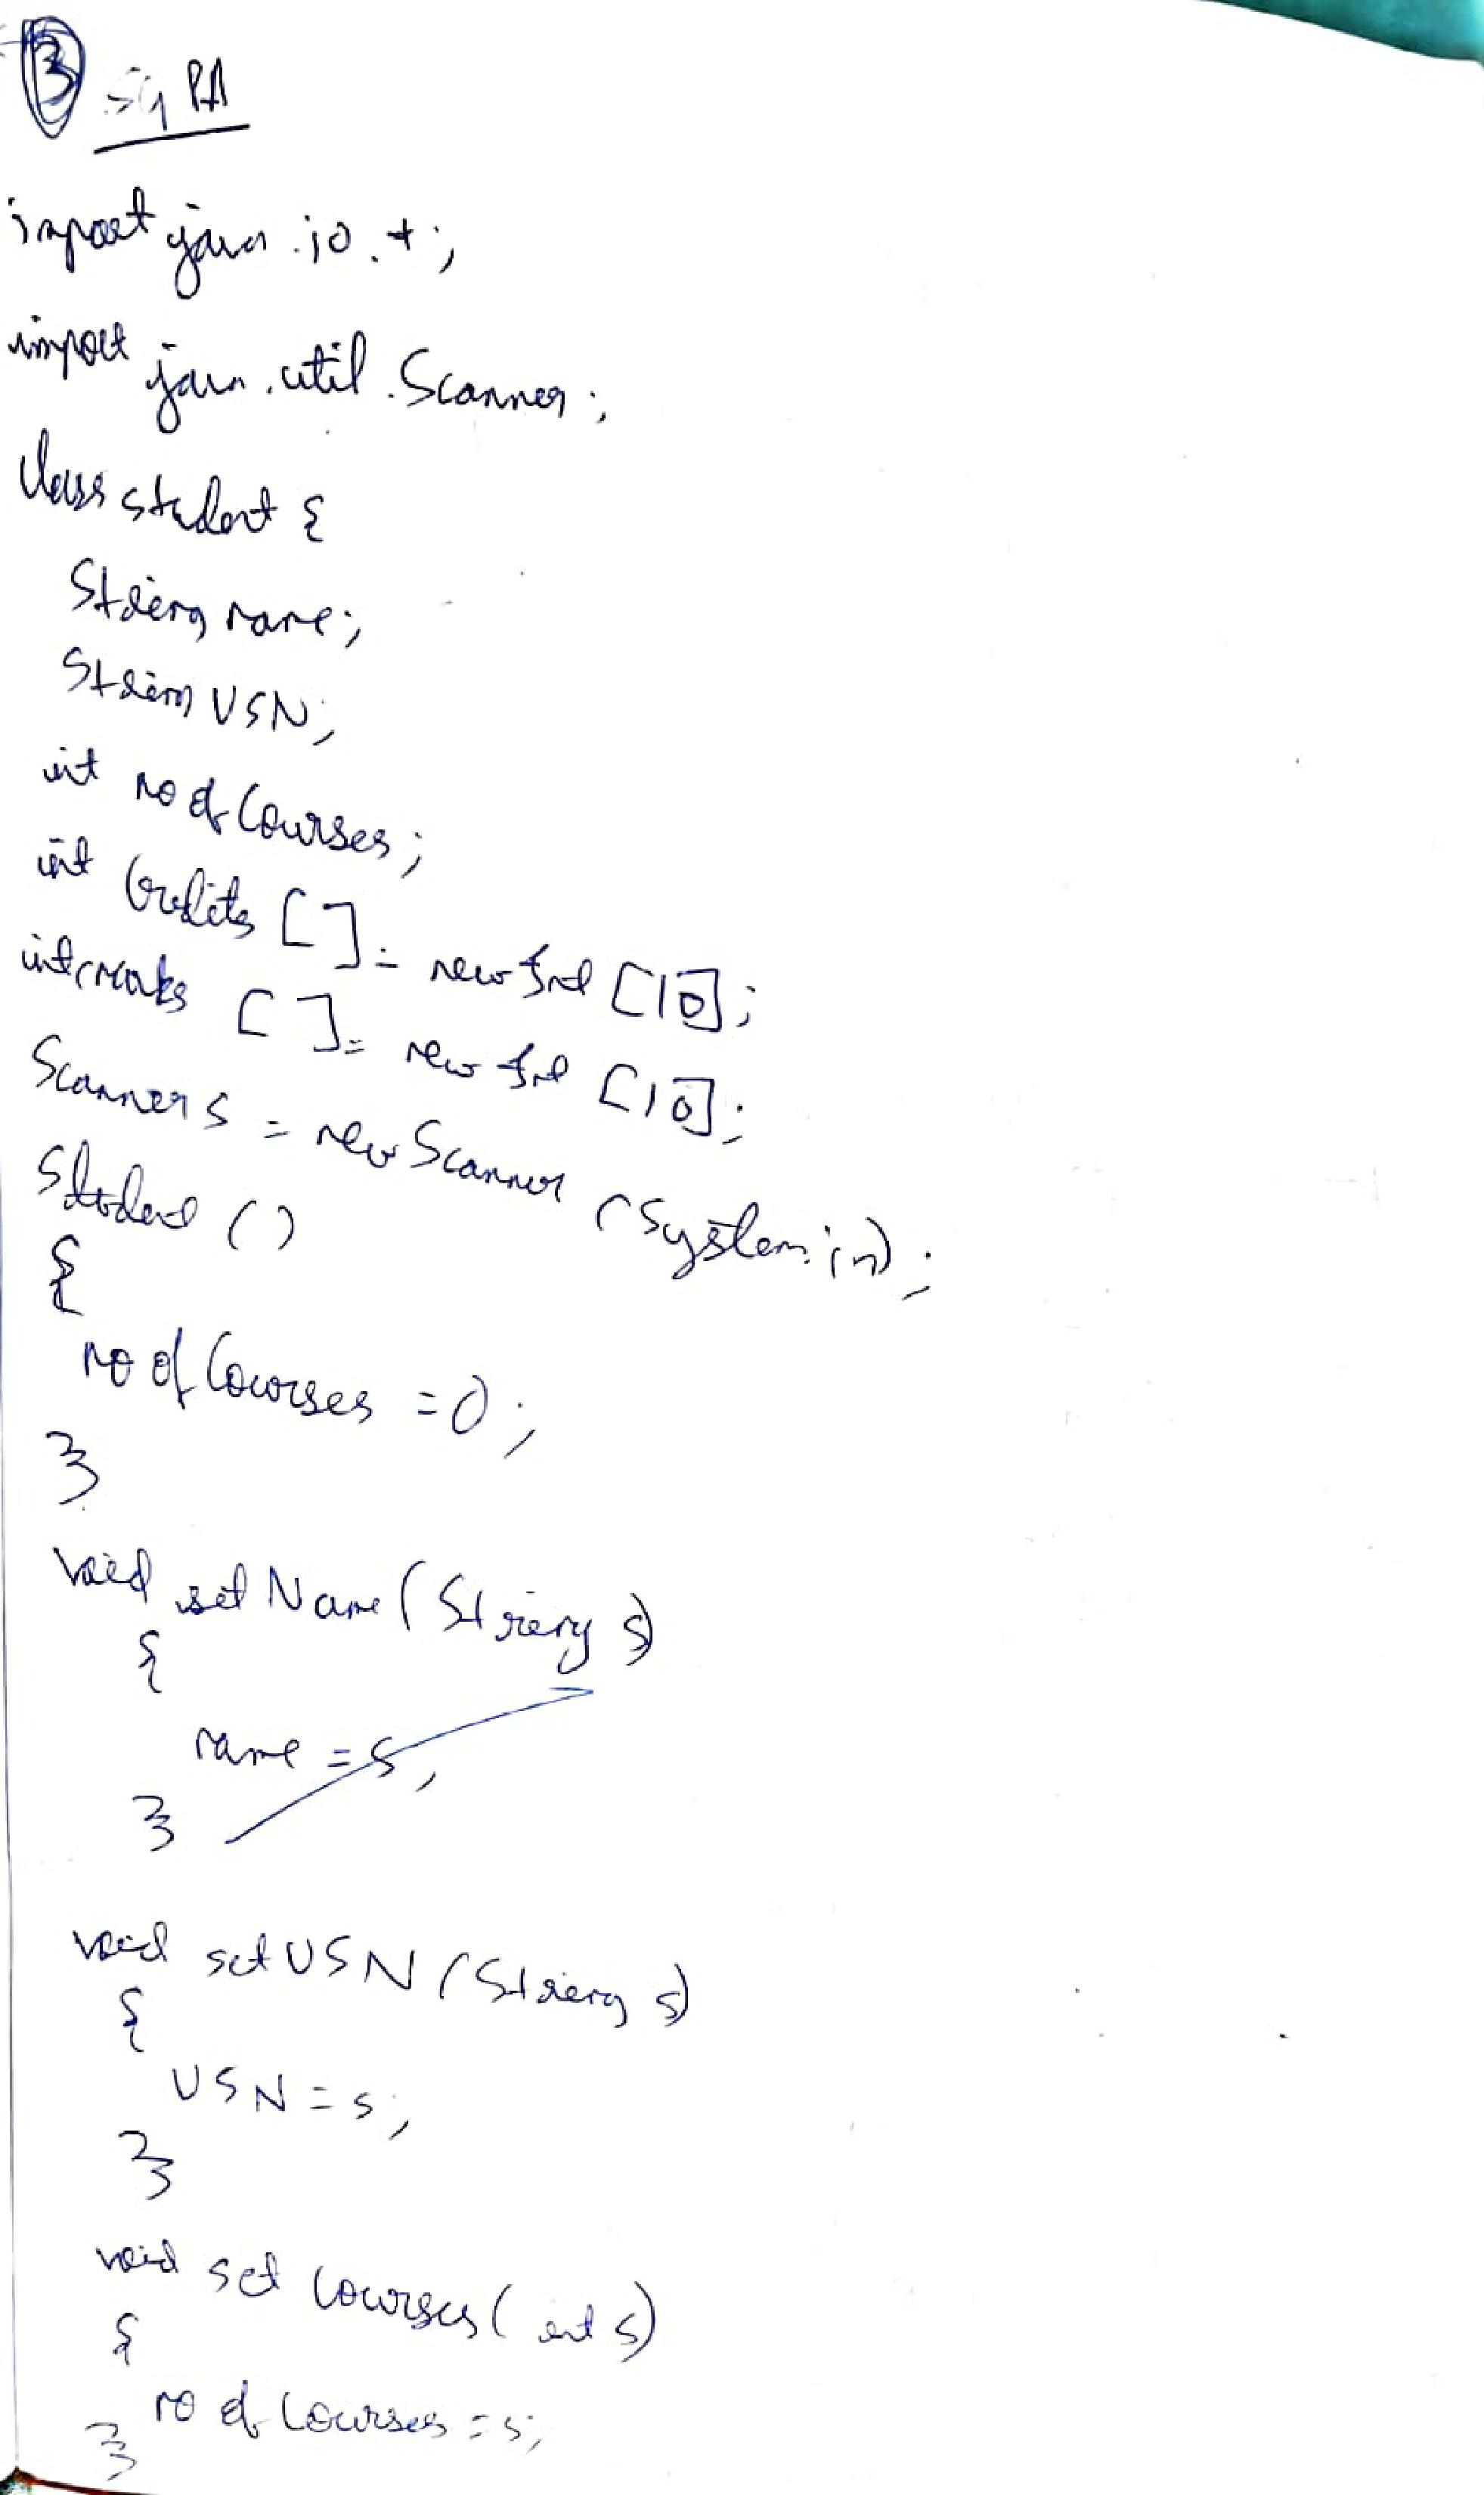 3 SGPA
import java.io.*;
import java.util.Scanner;
class student {
String name;
String USN;
int no of Courses;
int Credits [ ] = new int [10];
int marks [ ] = new int [10];
Scanner s = new Scanner (System.in);
Student ()
{
no of Courses = 0;
}
void set Name (String s)
{
name = s;
}
void set USN (String s)
{
USN = s;
}
void set Courses (int s)
{
no of Courses = s;
}